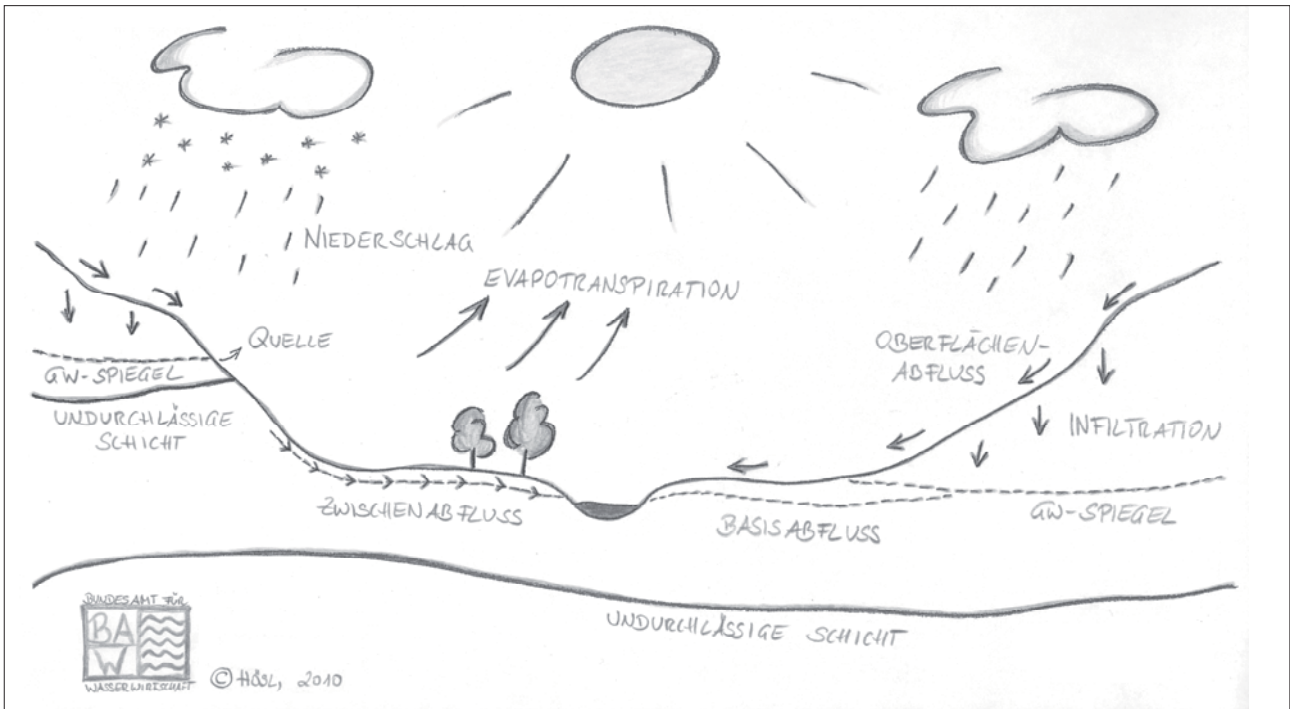 NIEDERSCHLAG
EVAPOTRANSPIRATION
QUELLE
GW-SPIEGEL
UNDURCHLÄSSIGE
SCHICHT
OBERFLÄCHEN-
ABFLUSS
INFILTRATION
ZWISCHENABFLUSS
BASISABFLUSS
GW-SPIEGEL
UNDURCHLÄSSIGE SCHICHT
BUNDESAMT FÜR
BA
W
WASSERWIRTSCHAFT
© HÖSL, 2010